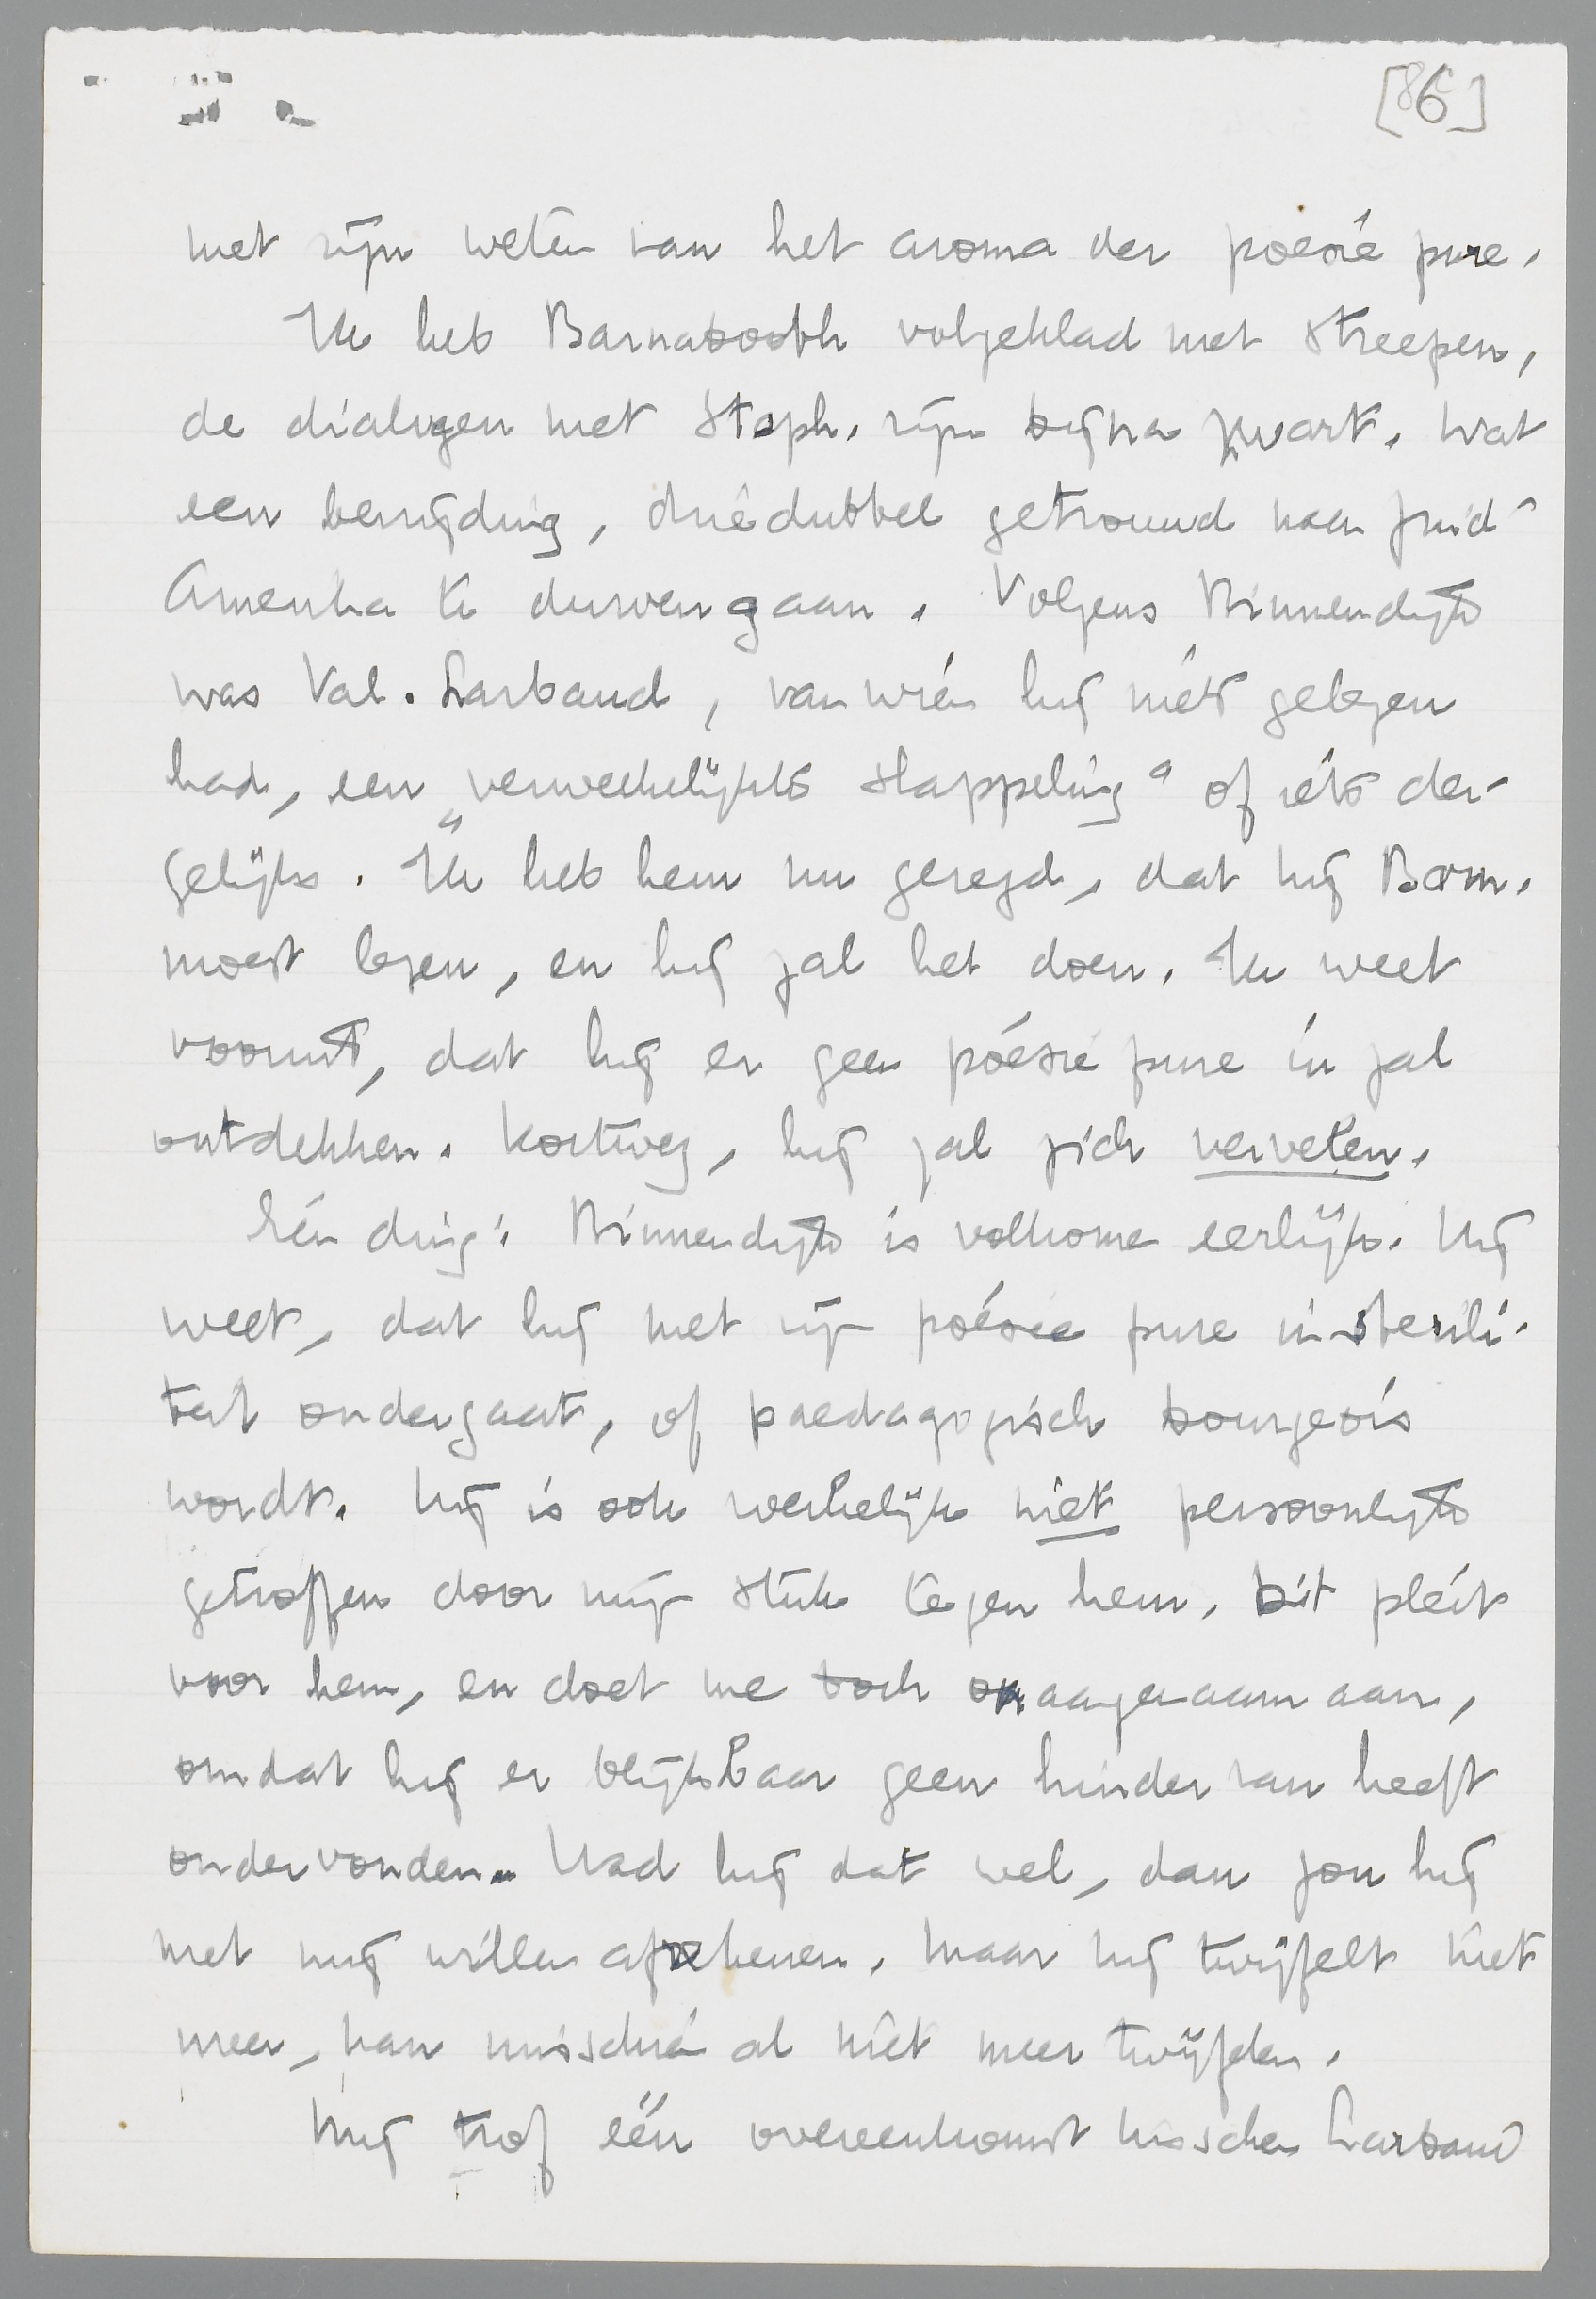 [86]
met zijn weten van het aroma der poesie pure.
Ik heb Barnabooth volgeklad met streepen,
de dialogen met Steph. zijn bijna zwart. Wat
een bevrijding, driedubbel getrouwd naar Zuid-
Amerika te durven gaan. Volgens Binnendijk
was Val. Larbaud, van wien hij niets gelezen
had, een „verweekelijkte slappeling" of iets der-
gelijks. Ik heb hem nu gezegd, dat hij Barn.
moest lezen, en hij zal het doen. Ik weet
vooruit, dat hij er geen poésie pure in zal
ontdekken. Kortweg, hij zal zich vervelen.
Eén ding: Binnendijk is volkomen eerlijk. Hij
weet, dat hij met zijn poésie pure in sterili-
teit ondergaat, of paedagogisch bourgeois
wordt. Hij is ook werkelijk niet persoonlijk
getroffen door mijn stuk tegen hem. Dit pleit
voor hem, en doet me toch onaangenaam aan,
omdat hij er blijkbaar geen hinder van heeft
ondervonden. Had hij dat wel, dan zou hij
met mij willen afrekenen. Maar hij twijfelt niet
meer, kan misschien al niet meer twijfelen.
Mij trof één overeenkomst tusschen Larbaud